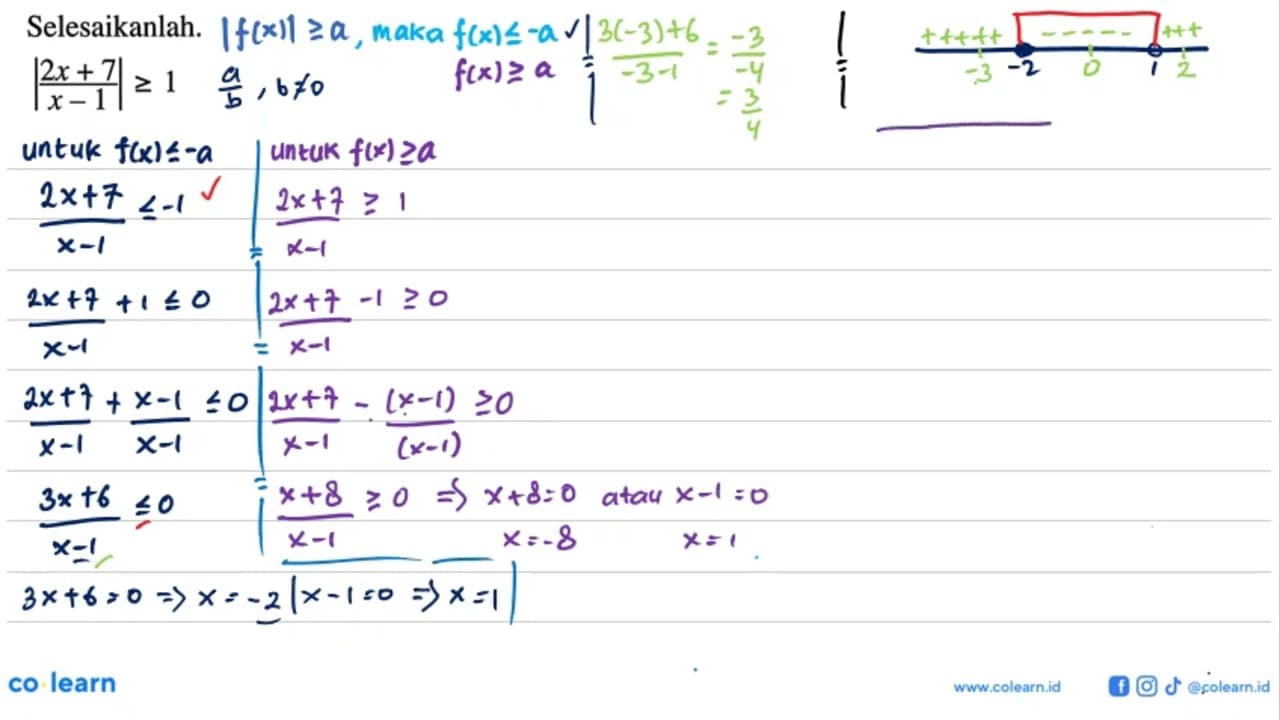 Selesaikanlah.
|f(x)| ≥ a, maka f(x) ≤ -a ✓
f(x) ≥ a
|2x + 7 / x - 1| ≥ 1
a/b , b ≠ 0
3(-3)+6 / -3-1 = -3/-4
= 3/4
+++++ ----- +++
-3 -2 0 1 2
untuk f(x) ≤ -a
2x+7 / x-1 ≤ -1 ✓
2x+7 / x-1 + 1 ≤ 0
2x+7 / x-1 + x-1 / x-1 ≤ 0
3x+6 / x-1 ≤ 0
3x+6=0 => x = -2 | x-1=0 => x=1
untuk f(x) ≥ a
2x+7 / x-1 ≥ 1
2x+7 / x-1 -1 ≥ 0
2x+7 / x-1 - (x-1) / (x-1) ≥ 0
x+8 / x-1 ≥ 0 => x+8=0 atau x-1=0
x=-8 x=1
co learn
www.colearn.id
@colearn.id